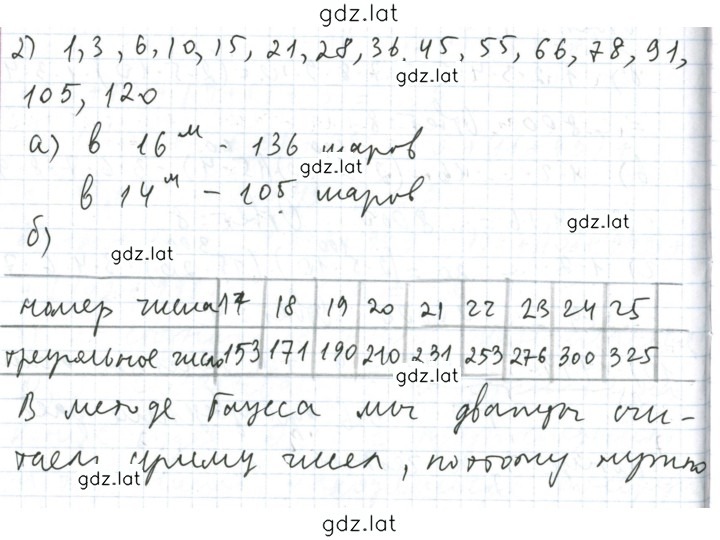 gdz.lat
2) 1, 3, 6, 10, 15, 21, 28, 36. 45, 55, 66, 78, 91,
gdz.lat
105, 120
а) в 16 м - 136 шаров
gdz.lat
в 14 м - 105 шаров
gdz.lat
б)
gdz.lat
номер числа 17 18 19 20 21 22 23 24 25
треугольное число 153 171 190 210 231 253 276 300 325
gdz.lat
В методе Гаусса мы дважды счи-
таем сумму чисел, поэтому нужно
gdz.lat
gdz.lat